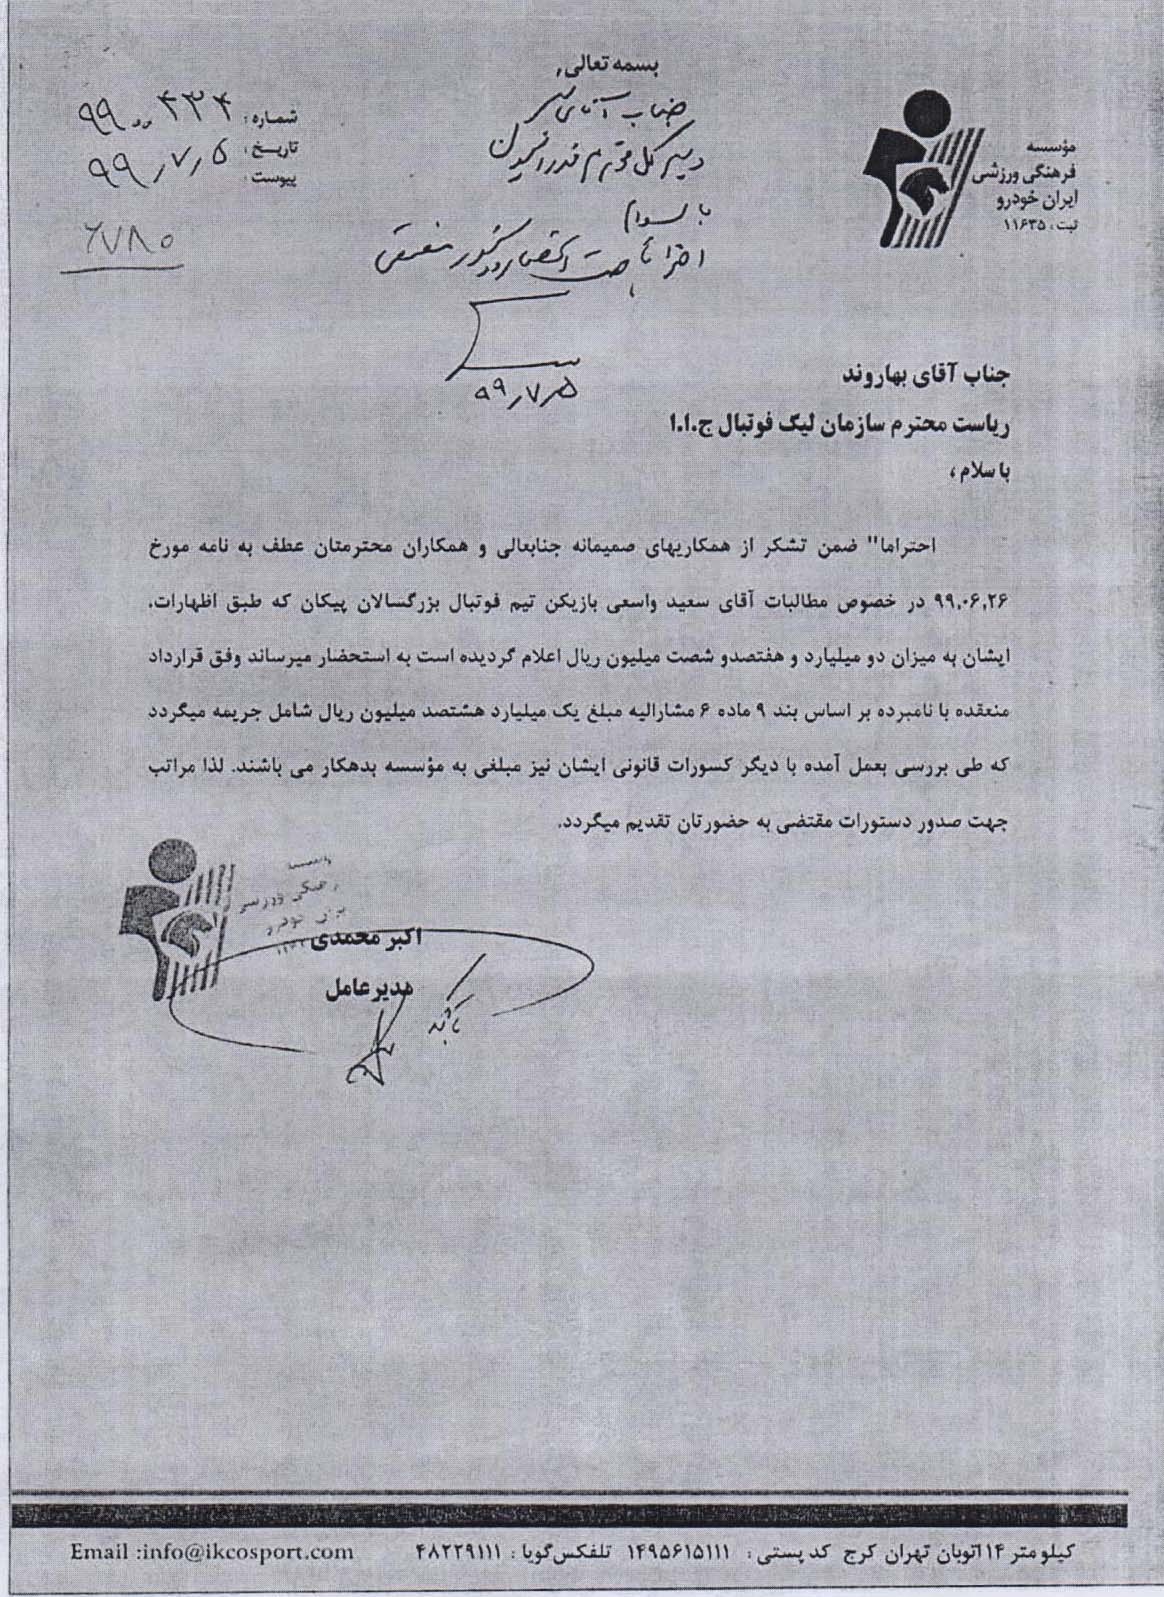 بسمه تعالی
مؤسسه
فرهنگی ورزشی
ایران خودرو
ثبت: ۱۱۶۳۵
شماره: ۹۹۰۰۴۳۴
تاریخ: ۹۹/۷/۵
پیوست:
جناب آقای
دبیر کل محترم فدراسیون
با سلام
احتراماً جهت استحضار و دستور مقتضی
۹۹/۷/۵
جناب آقای بهاروند
ریاست محترم سازمان لیگ فوتبال ج.ا.ا
با سلام ،
احتراما" ضمن تشکر از همکاریهای صمیمانه جنابعالی و همکاران محترمتان عطف به نامه مورخ
۹۹،۰۶،۲۶ در خصوص مطالبات آقای سعید واسعی بازیکن تیم فوتبال بزرگسالان پیکان که طبق اظهارات،
ایشان به میزان دو میلیارد و هفتصدو شصت میلیون ریال اعلام گردیده است به استحضار میرساند وفق قرارداد
منعقده با نامبرده بر اساس بند ۹ ماده ۶ مشارالیه مبلغ یک میلیارد هشتصد میلیون ریال شامل جریمه میگردد
که طی بررسی بعمل آمده با دیگر کسورات قانونی ایشان نیز مبلغی به مؤسسه بدهکار می باشند. لذا مراتب
جهت صدور دستورات مقتضی به حضورتان تقدیم میگردد.
اکبر محمدی
مدیرعامل
کیلومتر ۱۴ اتوبان تهران کرج کد پستی : ۱۴۹۵۶۱۵۱۱۱ تلفکس گویا : ۴۸۲۲۹۱۱۱ Email :info@ikcosport.com